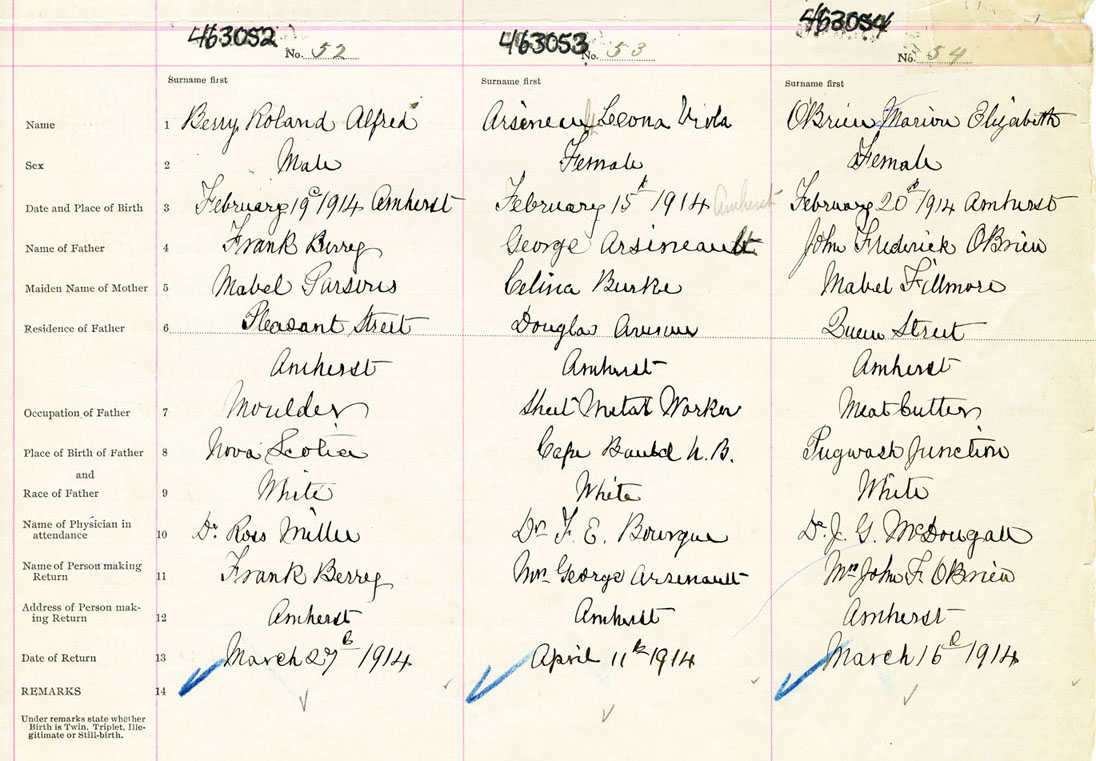 463052 463053 463054
No. 52 No. 53 No. 54
Surname first Surname first Surname first
Name 1 Berry, Roland Alfred Arseneau Leona Viola O'Brien, Marion Elizabeth
Sex 2 Male Female Female
Date and Place of Birth 3 February 19th 1914 Amherst February 15th 1914 Amherst February 20th 1914 Amherst
Name of Father 4 Frank Berry George Arsineault John Frederick O'Brien
Maiden Name of Mother 5 Mabel Parsons Celina Burke Mabel Fillmore
Residence of Father 6 Pleasant Street Douglas Avenue Queen Street
Amherst Amherst Amherst
Occupation of Father 7 Moulder Sheet Metal Worker Meat Cutter
Place of Birth of Father 8 Nova Scotia Cape N.B. Pugwash Junction
and
Race of Father 9 White White White
Name of Physician in
attendance 10 Dr Ross Miller Dr F. E. Bourque Dr J. G. McDougall
Name of Person making
Return 11 Frank Berry Mrs George Arsenault Mrs John F. O'Brien
Address of Person mak-
ing Return 12 Amherst Amherst Amherst
Date of Return 13 March 27th 1914 April 11th 1914 March 16th 1914
REMARKS 14
Under remarks state whether
Birth is Twin, Triplet, Ille-
gitimate or Still-birth.